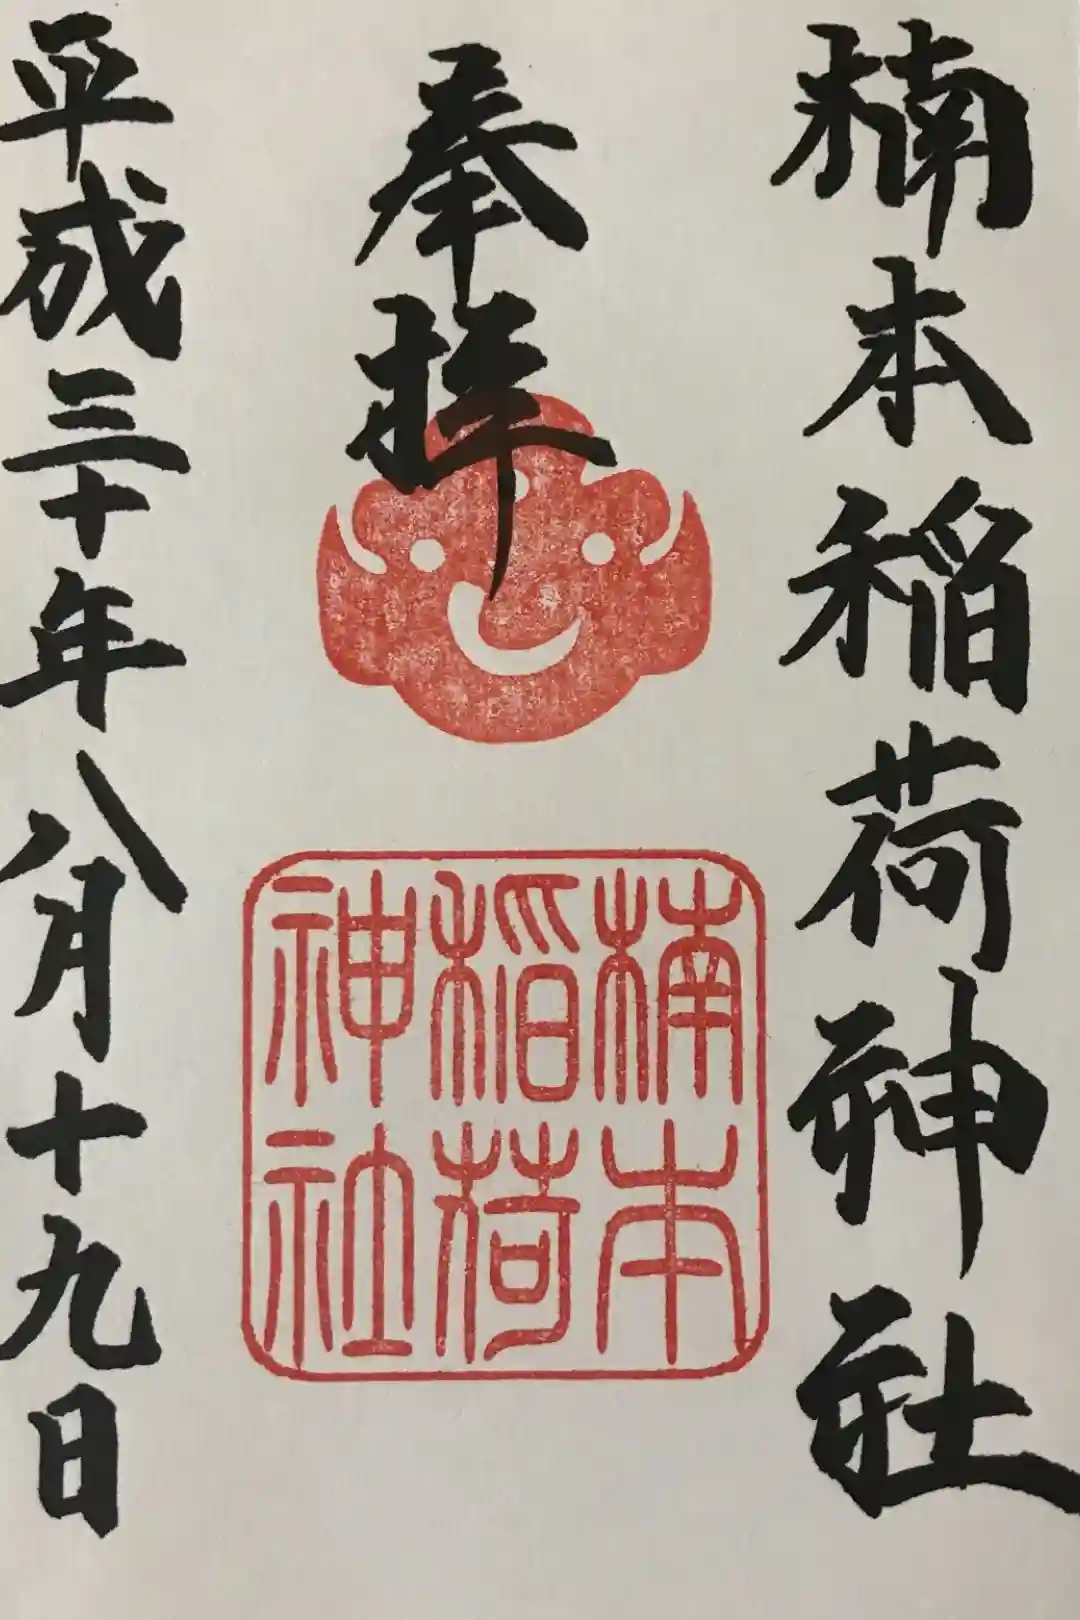 楠本稲荷神社
奉拝
楠本
稲荷
神社
平成三十年八月十九日